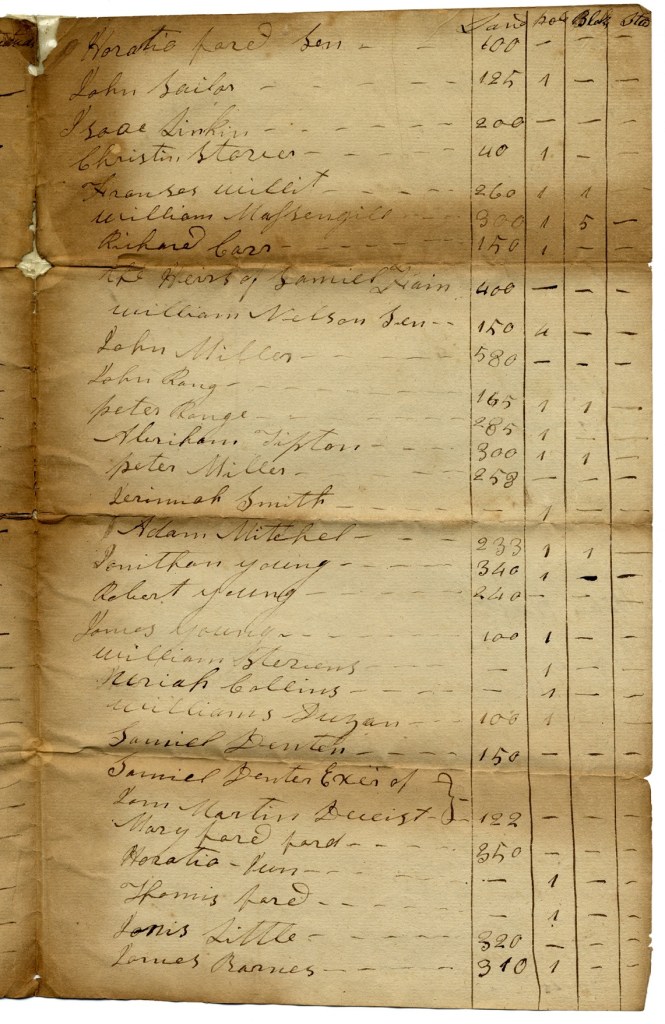 Land pole Black Stud
Horatio ford Sen - - 600 - - -
John Sailor - - - 125 1 - -
Isaac Linkin - - - - 200 - - -
Christin Storer - - - - 40 1 -
Franses Willit - - - - 260 1 1
William Massengill 300 1 5 -
Richard Carr - - - - 150 1 - -
The Heirs of Samiel Hain 400 - - -
William Nelson Sen - - 150 - -
John Miller - - - - 580 - - -
John Rang - - - - 165 1 1 -
peter Range - - - - 285 1 -
Abriham Tipton - - - 300 1 1 -
peter Miller - - - - 258 - -
Jerimiah Smith - - - - 1 -
Adam Mitchel - - - 233 1 1 -
Jonithan young - - - 340 1 - -
Robert young - - - - 240 - - -
James young - - - - 100 1 -
William Stevens - - - - 1 -
Uriah Collins - - - - 1 -
Williams Duzan - - 100 1 -
Samiel Denten - - - 150 - - -
Samiel Denter Exer of }
Martin Deceist - 122 - - -
Mary ford - - - 350 - - -
Horatio - - - - 1 - -
Thomis ford - - - - 1 -
Jonis Little - - - - 320 - - -
James Barnes - - - - 310 1 - -